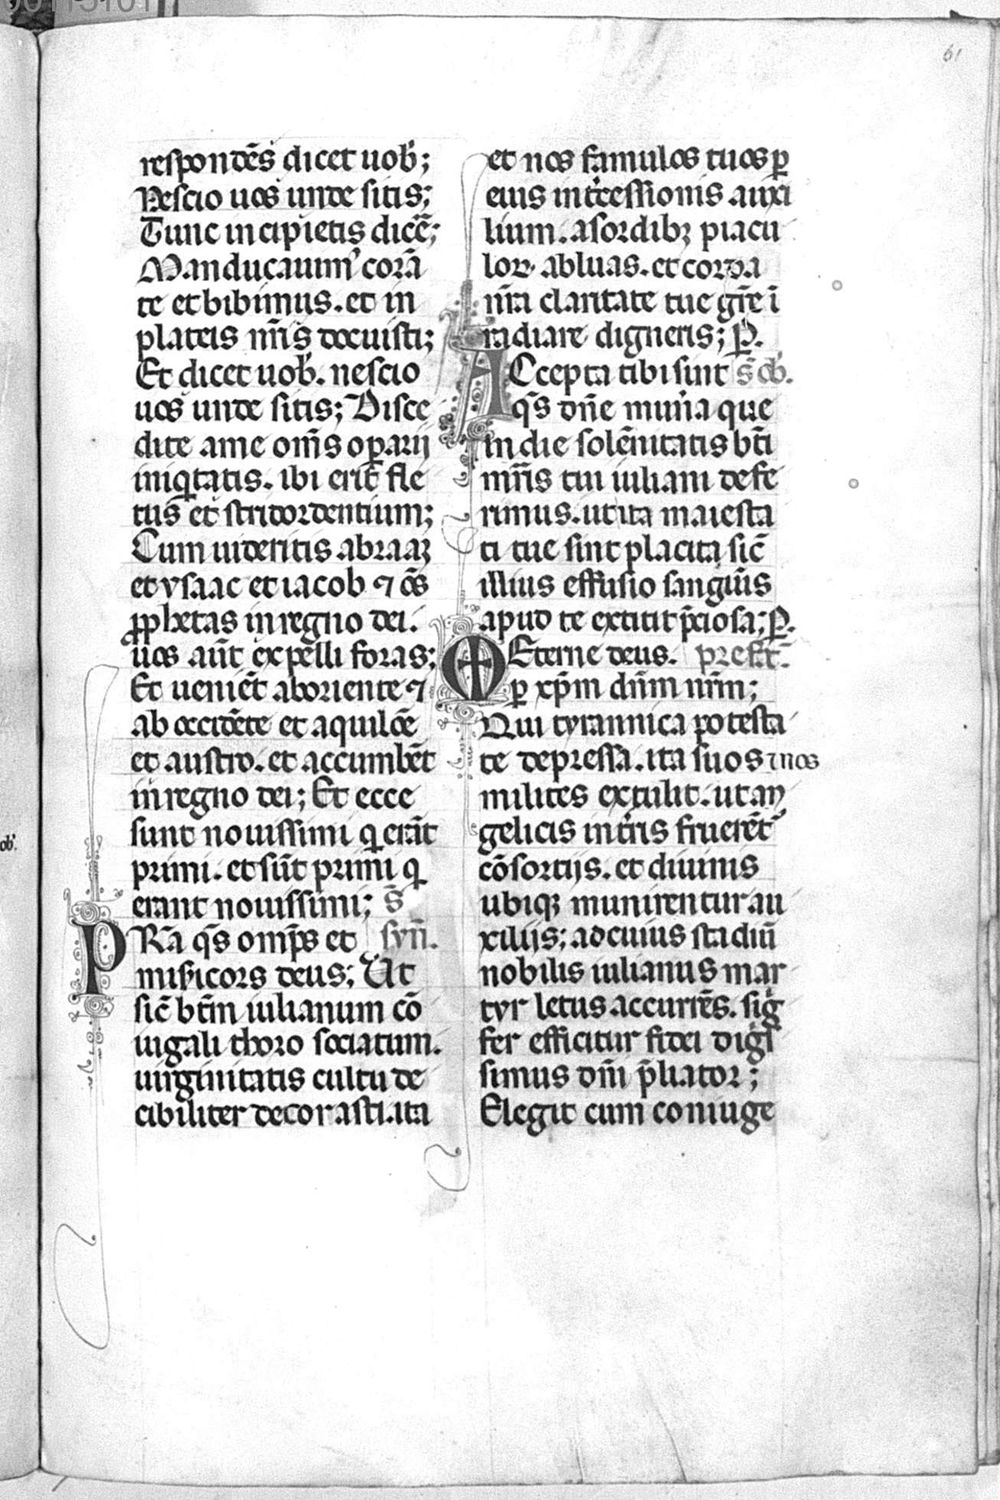 61
respondēs dicet uob̄;
Nescio uos unde sitis;
Tunc incipietis dicē;
Manducauim᾽ corā
te et bibimus. et in
plateis nr̄is docuisti;
Et dicet uob̄. nescio
uos unde sitis; Disce
dite a me om̄s oꝑarij
iniq̇tatis. ibi erit fle
tus et stridor dentium;
Cum uideritis abraaʒ
et ysaac et iacob ⁊ oēs
ꝓphetas in regno dei.
uos aūt expelli foras;
Et ueniēt ab oriente ⁊
ab occidēte et aquilōe
et austro. et accumbēt
in regno dei; Et ecce
sunt nouissimi q̇ erāt
primi. et sūt primi q̇
erant nouissimi; S̄
PRā q̄s omp̄s et syn̄.
misicors deus; Ut
sic̄ btm̄ iulianum cō
iugali thoro sociatum.
uirginitatis cultu de
cibiliter decorasti. ita
et nos famulos tuos ꝑ
eius int̄cessionis auxi
lium. a sordibꝫ piacu
loꝝ abluas. et corda
nr̄a claritate tue gr̄e ī
radiare digneris; P̄.
ACcepta tibi sint s̄ cb̄.
q̄s dn̄e munīa que
in die solēnitatis bt̄i
mr̄is tui iuliani defe
rimus. ut ita maiesta
ti tue sint placita sic̄
illius effusio sanguīs
apud te extitit p̄ciosa; P̄.
Eterne deus. prefat̄.
ꝑ xp̄m dn̄m nr̄m;
Qui tyrannica potesta
te depressa. ita suos inos
milites extulit. ut an
gelicis int̄ris fruerēt᾽
cōsortijs. et diuinis
ubiqꝫ munirentur au
xilijs; ad cuius stadiū
nobilis iulianus mar
tyr letus accurrēs. siġ
fer efficitur fidei diġs
simus dn̄i p̄liator;
Elegit cum coniuge
ob̄.